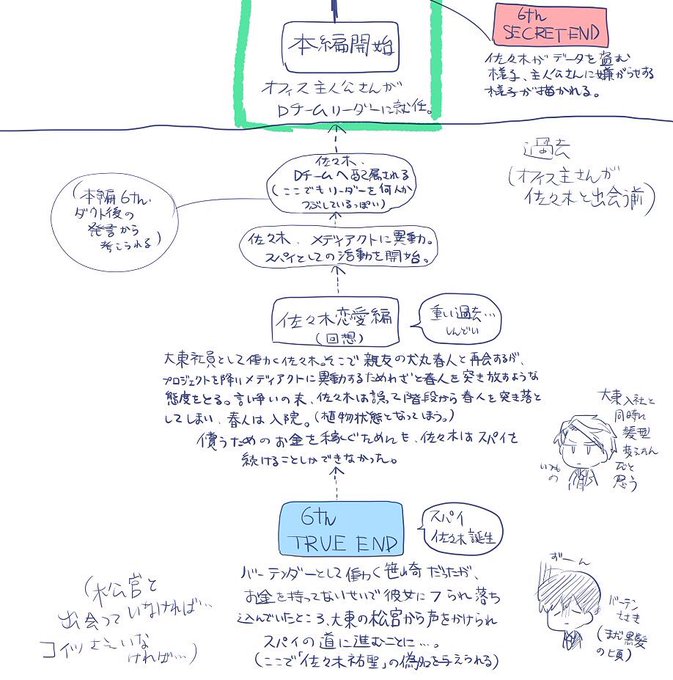 本編開始
オフィス主人公さんが
Dチームリーダーに就任。
6th
SECRET END
佐々木がデータを盗む
様子、主人公さんに嫌がらせする
様子が描かれる。
過去
(オフィス主さんが
佐々木と出会う前)
佐々木、
Dチームへ配属される
(ここでもリーダーを何人か
つぶしているっぽい)
(本編6th、
ダウト後の
発言から
考えられる)
佐々木、メディアクトに異動。
スパイとしての活動を開始。
佐々木恋愛編
(回想)
重い過去…
しんどい
大東社員として働く佐々木。そこで親友の犬丸春人と再会するが、
プロジェクトを降りメディアクトに異動するためわざと春人を突き放すような
態度をとる。言い争いの末、佐々木は誤って階段から春人を突き落と
してしまい、春人は入院。(植物状態となってしまう。)
償うためのお金を稼ぐためにも、佐々木はスパイを
続けることしかできなかった。
大東入社と
同時に
髪型
変えたん
だと
思う
いつも
の
6th
TRUE END
スパイ
佐々木誕生
バーテンダーとして働く笹崎だったが、
お金を持ってないせいで彼女にフられ落ち
込んでいたところ、大東の松宮から声をかけられ
スパイの道に進むことに…。
(ここで「佐々木祐聖」の偽名を与えられる)
(松宮と
出会って いなければ…
コイツさえいな
ければ…)
ずーん
バーテン
ささき
(まだ黒髪
の頃)